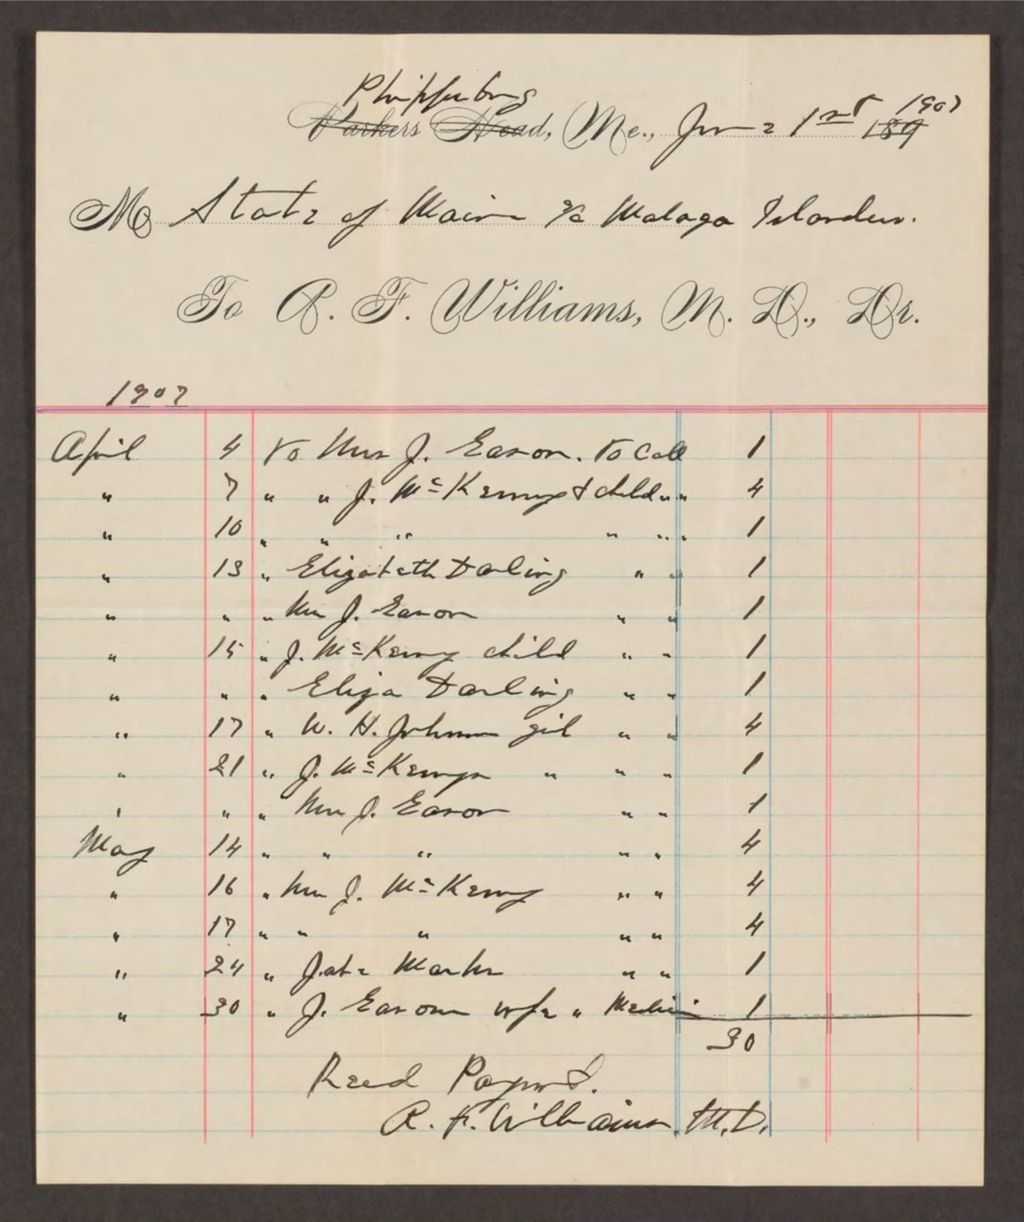 Phippsburg
Parkers Head, Me., June 1st 189 1907
M State of Maine %a Malaga Islanders.
To A. F. Williams, M. D., Dr.
1907
April 4 To Mrs J. Eason. To Call 1
" 7 " " J. McKenny & child " " 4
" 10 " " " " " 1
" 13 " Elizabeth Darling " " 1
" " " Mrs J. Eason " " 1
" 15 " J. McKenny child " " 1
" " " Eliza Darling " " 1
" 17 " W. H. Johnson girl " " 4
" 21 " J. McKenny " " " 1
" " " Mrs J. Eason " " 1
May 14 " " " " " 4
" 16 " Mrs J. McKenny " " 4
" 17 " " " " " 4
" 24 " Jake Marks " " 1
" 30 " J. Eason wife " Medicin 1
30
Recd Paymt.
A. F. Williams. M.D.